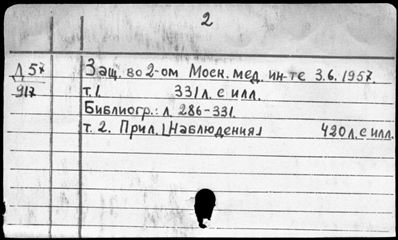 2
Д57 Защ. во 2-ом Моск. мед. ин-те 3.6.1957.
917 т.1. 331 л. с илл.
Библиогр.: л. 286-331.
т. 2. Прил. [Наблюдения] 420 л. с илл.